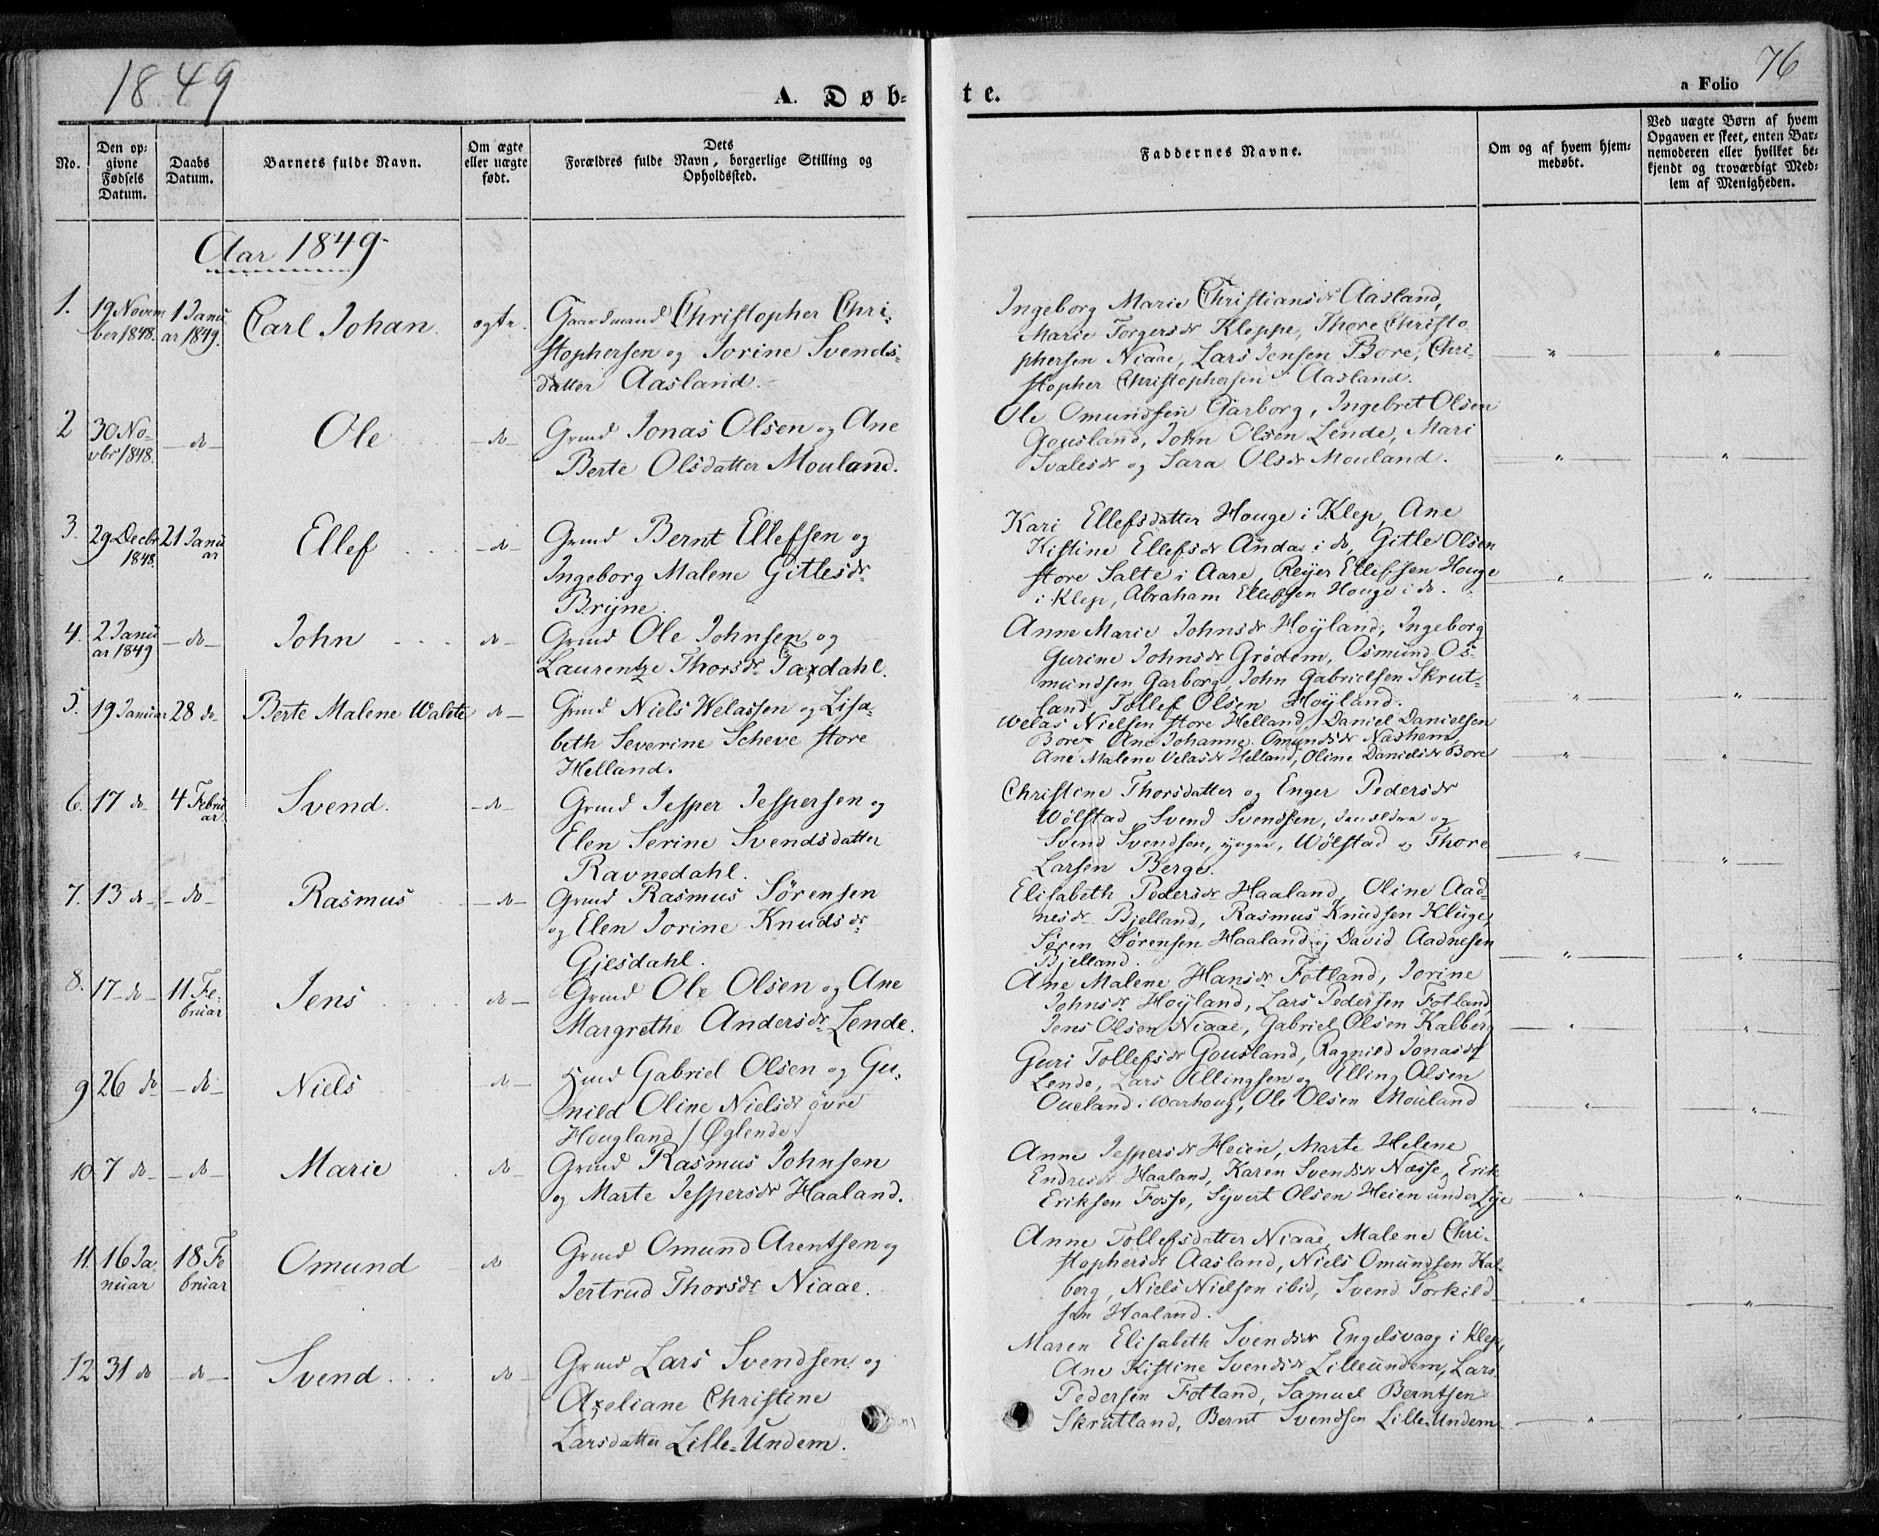 1849
A. Døb-
te.
a Folio 76
No.
Den op-
givne
Fødsels
Datum.
Daabs
Datum.
Barnets fulde Navn.
Om ægte
eller uægte
født.
Dets
Forældres fulde Navn, borgerlige Stilling og
Opholdssted.
Faddernes Navne.
Om og af hvem hjem-
medøbt.
Ved uægte Børn af hvem
Opgaven er skeet, enten Bar-
nemoderen eller hvilket be-
kjendt og troværdigt Med-
lem af Menigheden.
Aar 1849
1. 19 Novem
ber 1848. 1 Janu
ar 1849. Carl Johan. ægte.
Gaardmand Christopher Chri-
stophersen og Jorine Svends-
datter Aasland.
Ingeborg Marie Christiansdr Aasland,
Marie Torgersdr Kleppe, Thore Christo
phersen Niaae, Lars Jensen Bore, Chri-
stopher Christophersen Aasland.
2 30 No-
vbr 1848. – do Ole – do –
Grmd Jonas Olsen og Ane
Berte Olsdatter Mouland.
Ole Omundsen Garborg, Ingebret Olsen
Gousland, John Olsen Lende, Mari
Svalesdr og Sara Olsdr Mouland.
3. 29 Decbr
1848. 21 Janu
ar Ellef – do –
Grmd Bernt Ellefsen og
Ingeborg Malene Gitlesdr
Bryne.
Kari Ellefsdatter Houge i Klep, Ane
Kistine Ellefsdr Anda i do, Gitle Olsen
store Salte i Aare, Reyer Ellefsen Houge
i Klep, Abraham Ellefsen Houge i do.
4. 2 Janu
ar 1849 – do – John do –
Grmd Ole Johnsen og
Laurentze Thorsdr Taxdahl.
Anne Marie Johnsdr Høyland, Ingeborg
Gurine Johnsdr Grødem, Osmund Os-
mundsen Garborg, John Gabrielsen Skrut-
land, Tollef Olsen Høyland.
5. 19 Januar 28 do Berte Malene Walete do –
Grmd Niels Welassen og Lisa-
beth Severine Scheve store
Helland.
Welas Nielsen store Helland, Daniel Danielsen
Bore, Ane Johanne Omundsdr Næshem,
Ane Malene Velasdr Helland, Oline Danielsdr Bore
6. 17 do 4 Febru
ar. Svend. – do
Grmd Jesper Jespersen og
Elen Serine Svendsdatter
Ravnedahl.
Christine Thorsdatter og Enger Pedersdr
Wølstad, Svend Svendsen, den ældre og
Svend Svendsen, yngre, Wølstad og Thore
Larsen Berge.
7. 13 do – – do – Rasmus – do –
Grmd Rasmus Sørensen
og Elen Jorine Knudsdr
Gjesdahl.
Elisabeth Pedersdr Haaland, Oline Aad-
nesdr Bjelland, Rasmus Knudsen Kluge,
Søren Sørensen Haaland og David Aadnesen
Bjelland.
8. 17 – do – 11 Fe-
bruar Jens do –
Grmd Ole Olsen og Ane
Margrethe Andersdr Lende.
Ane Malene Hansdr Fotland, Jorine
Johnsdr Høyland, Lars Pedersen Fotland,
Jens Olsen Niaae, Gabriel Olsen Kalberg
9 26 do – do – Niels do –
Hmd Gabriel Olsen og Gu-
nild Oline Nielsdr øvre
Hougland / Øglende /
Guri Tollefsdr Gousland, Ragnild Jonasdr
Lende, Lars Ellingsen og Elling Olsen
Oueland i Warhoug, Ole Olsen Mouland
10. 7 do – – do – Marie do –
Grmd Rasmus Johnsen
og Marte Jespersdr Haaland.
Anne Jespersdr Heien, Marte Helene
Endresdr Haaland, Karen Svendsdr Næsse, Erik
Eriksen Fosse, Syvert Olsen Heien under Lye
11. 16 Ja-
nuar 18 Fe
bruar Omund do
Grmd Omund Arentsen og
Jertrud Thorsdr Niaae.
Anne Tollefsdatter Niaae, Malene Chri-
stophersdr Aasland, Niels Omundsen Kal-
berg, Niels Nielsen ibid, Svend Torkild
sen Haaland.
12 31 do – do – Svend do –
Grmd Lars Svendsen og
Axeliane Christine
Larsdatter Lille-Undem.
Maren Elisabeth Svendsdr Engelsvaag i Klep,
Ane Kistine Svendsdr Lilleundem, Lars
Pedersen Fotland, Samuel Berntsen
Skrutland, Bernt Svendsen Lille-Undem